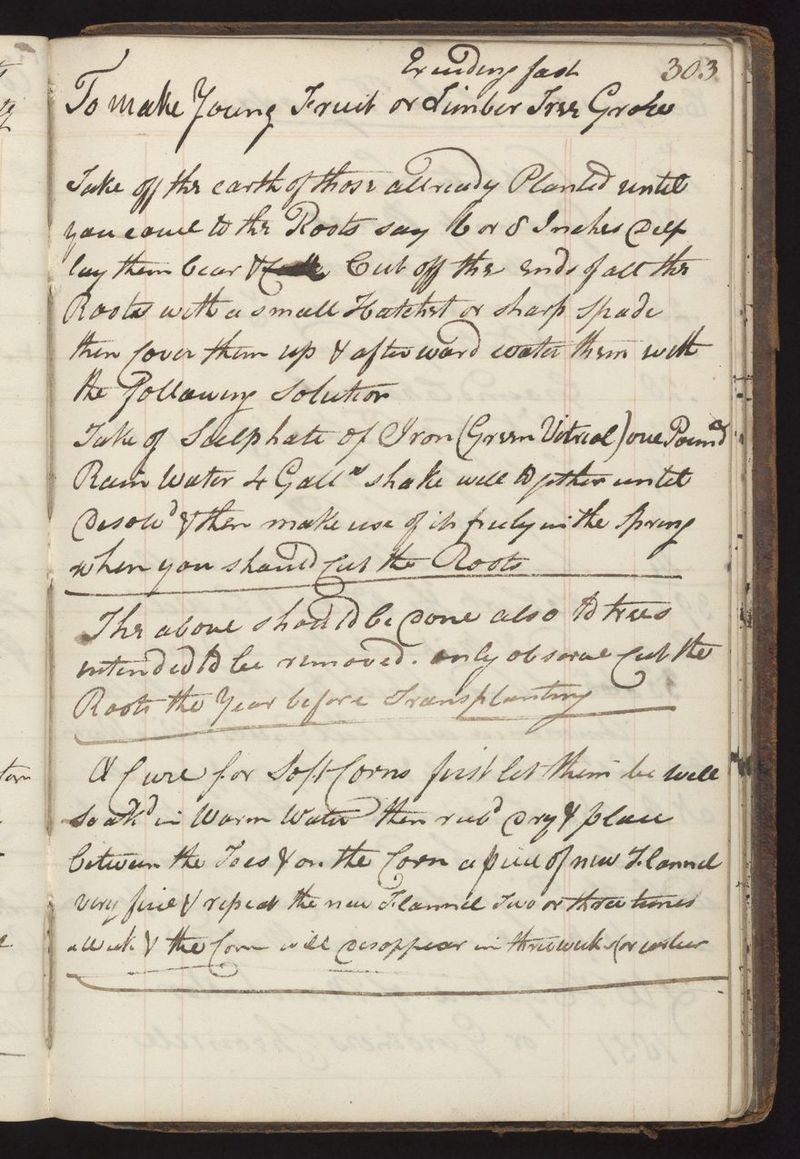 303
Exceeding fast
To make Young Fruit or Timber Tree Grow
Take off the earth of those allready Planted untill
you come to the Roots say 6 or 8 Inches deep
lay them bear & Cut off the ends of all the
Roots with a small Hatchet or sharp Spade
then Cover them up & afterward water them with
the following Solution
Take of Sulphate of Iron (Green Vitriol) one Pound
Rain Water 4 Galls shake well together untill
desolvd & then make use of it freely in the Spring
when you should Cut the Roots
The above should be done also to trees
intended to be removed. only observe Cut the
Roots the Year before Transplanting
A Cure for Soft Corns first let them be well
soakd in Warm Water then rubd dry & place
between the Toes & on the Corn a piece of new Flannel
very fine & repeat the new Flannel Two or three times
a Week & the Corn will disappear in three weeks or earlier